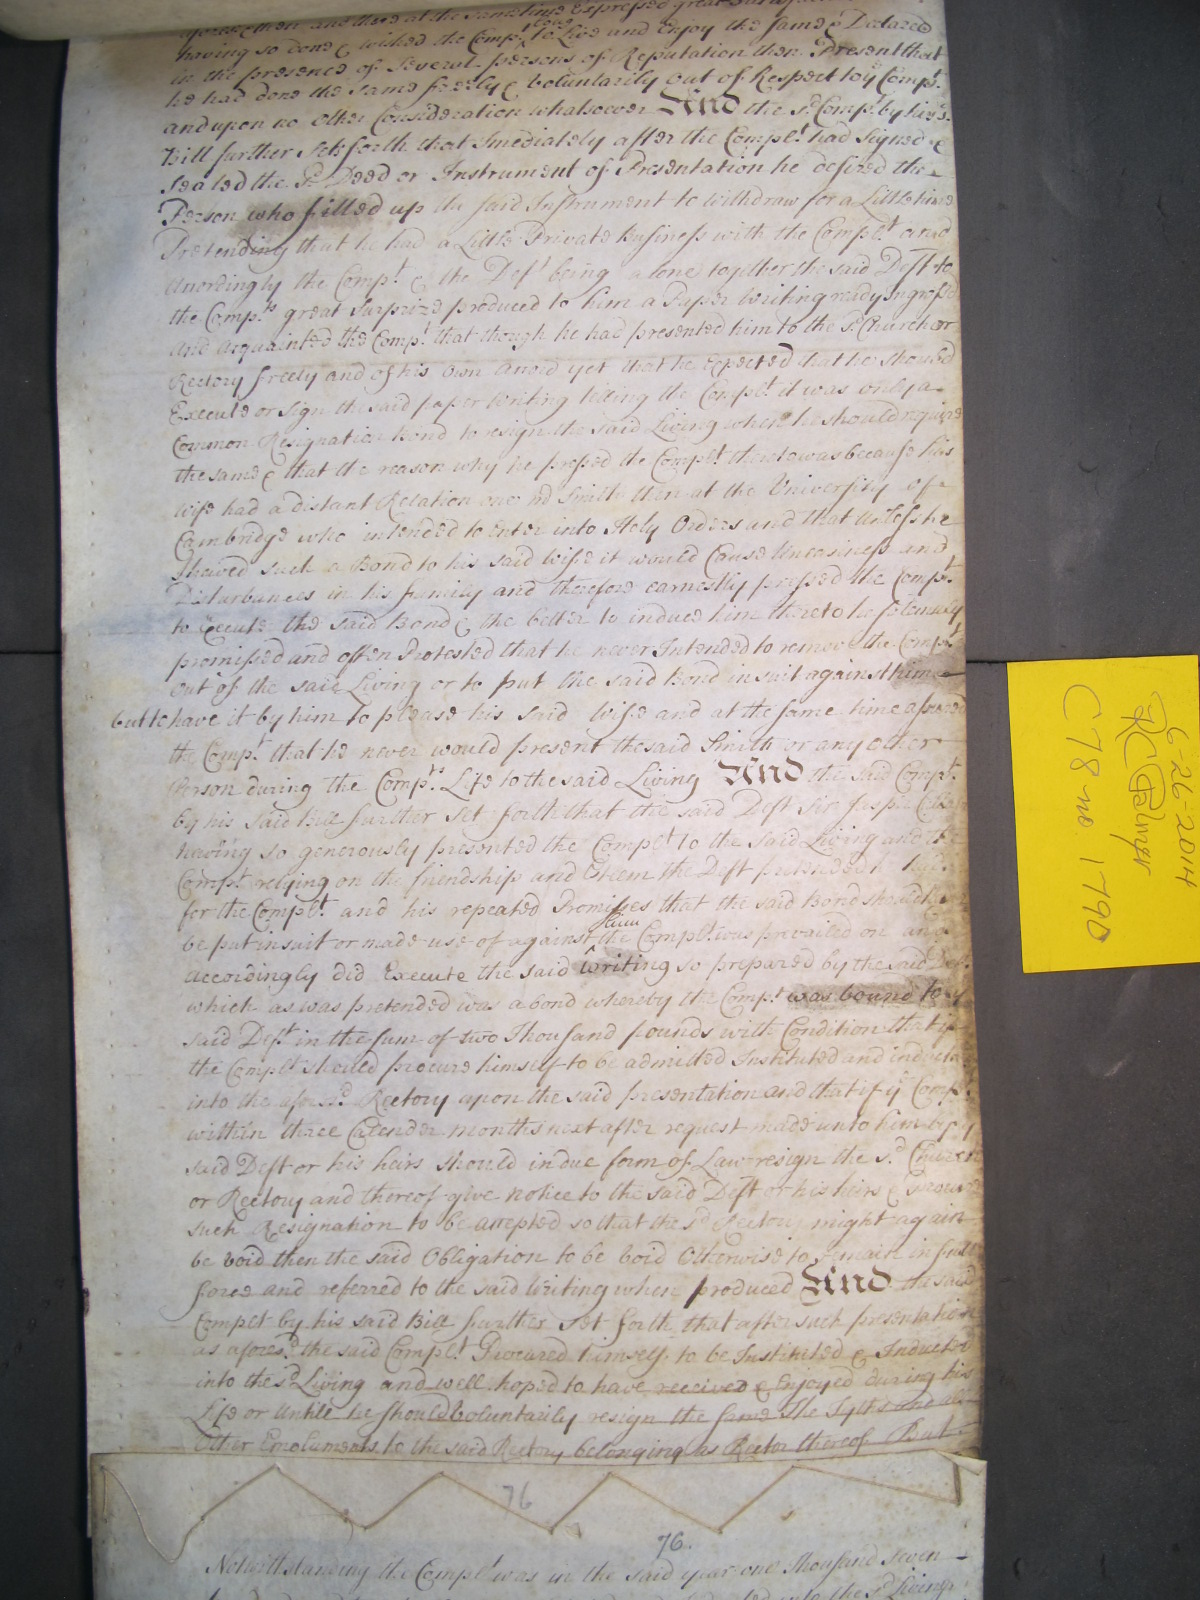 aforementioned and there at the same time expressed great
having so done & wished the Compt. long to Live and Enjoy the same & Declared
in the presence of several persons of Reputation then Present that
he had done the same freely & Voluntarily out of Respect to ye Compt.
and upon no other Consideration whatsoever And the sd. Compt. by his sd.
Bill further Sets forth that Imediately after the Complt. had Signed &
Sealed the sd. Deed or Instrument of Presentation he desired the
Person who filled up the said Instrument to withdraw for a Little time
Pretending that he had a Little Private Business with the Complt. and
Accordingly the Compt. & the Deft. being alone together the said Deft. to
the Compts. great Surprize produced to him a Paper Writing ready Ingrossed
and acquainted the Compt. that though he had presented him to the sd. Church or
Rectory freely and of his own accord yet that he Expected that he should
Execute or sign the said paper Writing telling the Complt. it was only a
Common Resignation Bond to resign the said Living when he should require
the same & that the reason why he pressed the Complt. thereto was because his
wife had a distant Relation one Mr Smith then at the University of
Cambridge who intended to Enter into Holy Orders and that unless he
Shewed such a Bond to his said Wife it would Cause Uneasiness and
Disturbances in his family and therefore earnestly pressed the Compt.
to Execute the said Bond & the better to induce him thereto he solemnly
promissed and often Protested that he never Intended to remove the Compt.
out of the said Living or to put the said Bond in suit against him
but to have it by him to please his said Wife and at the same time assured
the Compt. that he never would present the said Smith or any other
Person during the Compts. Life to the said Living And the said Compt.
by his said Bill further Set forth that the said Deft Sir Jasper
having so generously presented the Complt to the said Living and the
Compt. relying on the friendship and Esteem the Deft pretended
for the Complt. and his repeated Promises that the said Bond should
be put in suit or made use of against him the Complt. was prevailed on and
accordingly did Execute the said Writing so prepared by the said Deft.
which as was pretended was a bond whereby the Compt. was bound to ye
said Deft. in the sum of two Thousand pounds with Condition that if
the Complt should procure himself to be admitted Instituted and inducted
into the aforesd. Rectory upon the said presentation and that if ye Compt.
within three Calender months next after request made unto him by ye
said Deft or his heirs should in due form of Law resign the sd. Church
or Rectory and thereof give notice to the said Deft or his heirs & procure
such Resignation to be accepted so that the sd Rectory might again
be void then the said Obligation to be void Otherwise to remain in full
force and referred to the said Writing when produced And the said
Complt by his said Bill further Set forth that after such presentation
as aforesd. the said Complt. Procured himself to be Instituted & Inducted
into the sd Living and well hoped to have received & Enjoyed during his
Life or Untill he should Voluntarily resign the same The Tyths and all
Other Emoluments to the said Rectory belonging as Rector thereof But
76
76.
Notwithstanding the Complt was in the said year one Thousand Seven
6-26-2014
RC Palmer
C78 no. 1790